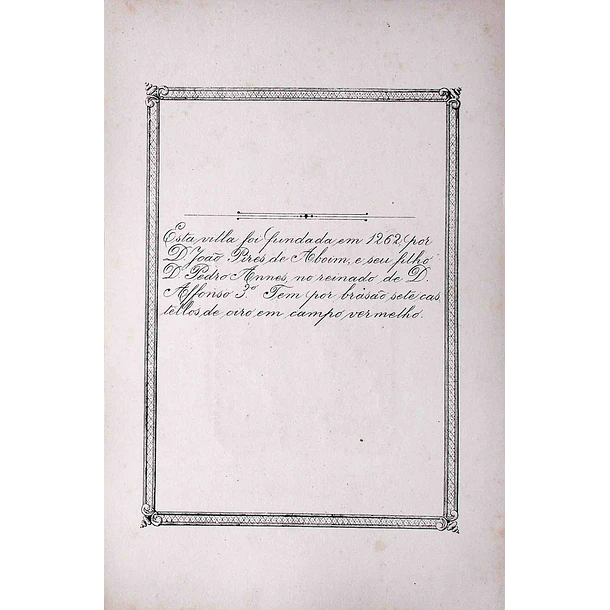 Esta villa foi fundada em 1262, por
D. João Pires de Aboim, e seu filho
D. Pedro Annes, no reinado de D.
Affonso 3.º Tem por brasão, sete cas
tellos, de oiro, em campo, vermelho.